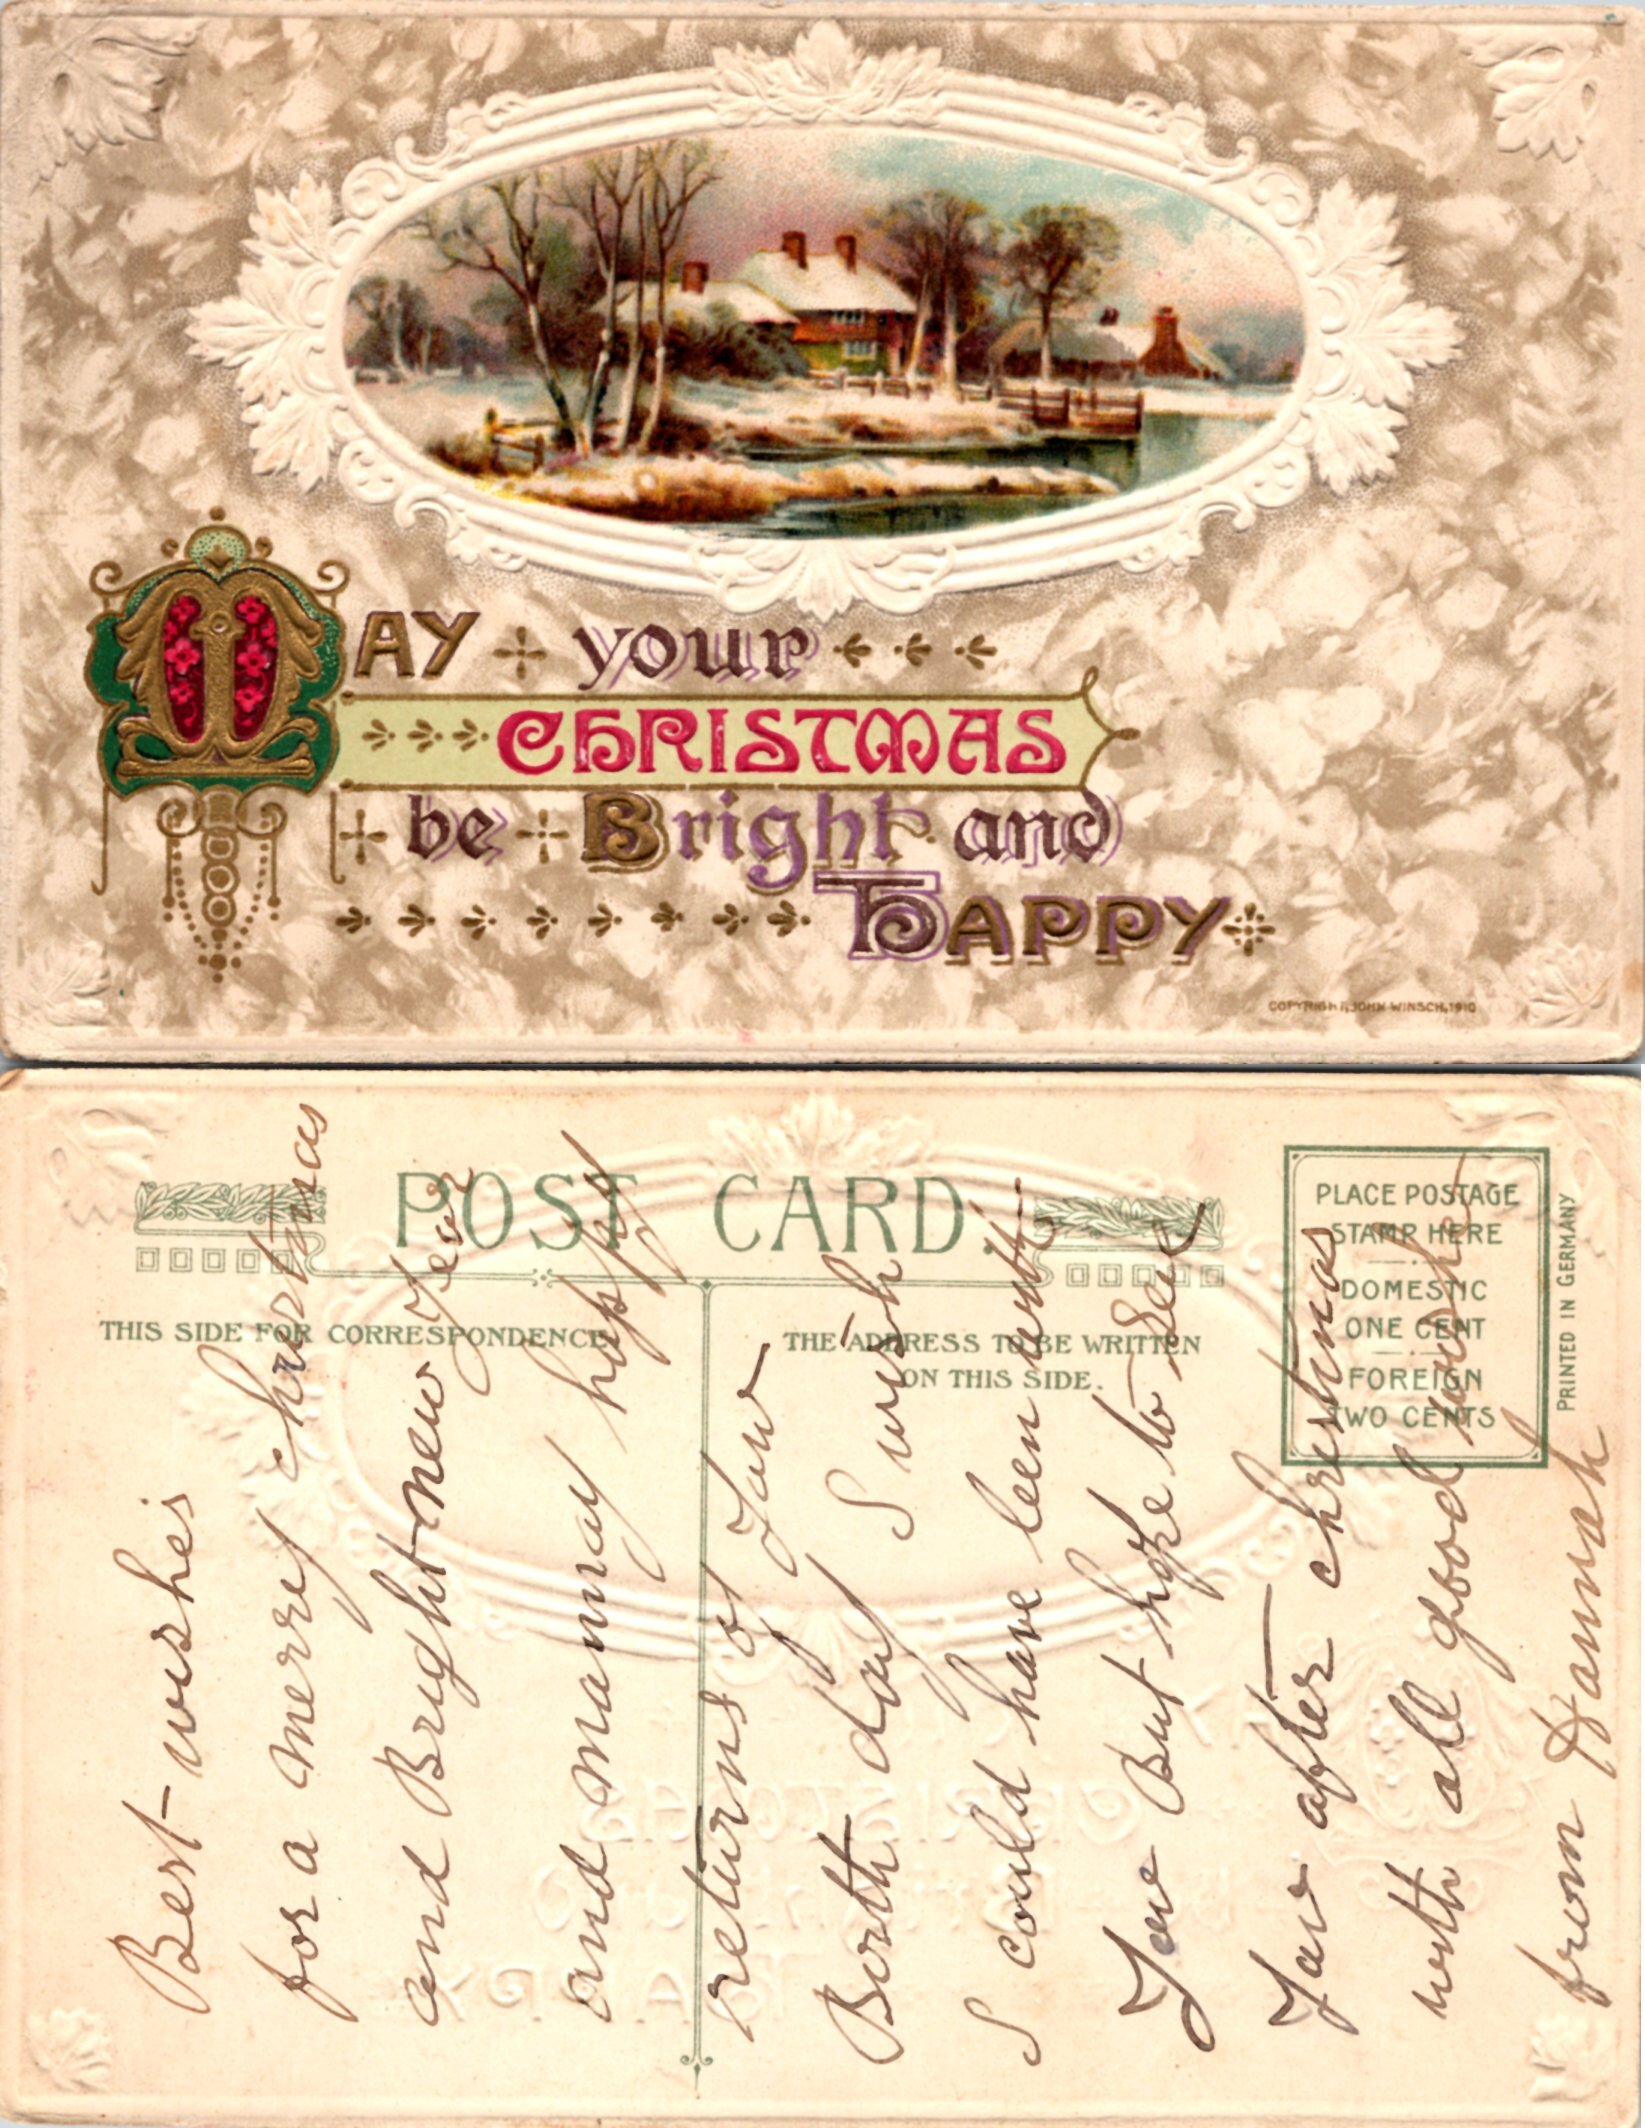 MAY your
CHRISTMAS
be Bright and
HAPPY
COPYRIGHT, JOHN WINSCH, 1910
POST CARD.
THIS SIDE FOR CORRESPONDENCE.
THE ADDRESS TO BE WRITTEN
ON THIS SIDE.
PLACE POSTAGE
STAMP HERE
DOMESTIC
ONE CENT
FOREIGN
TWO CENTS
PRINTED IN GERMANY
Best wishes
for a merry christmas
and Bright new year
and manny happy
returns of Your
Birth day I wish
I could have been with
You But hope to See
You after christmas
with all good wishe
from Hannah